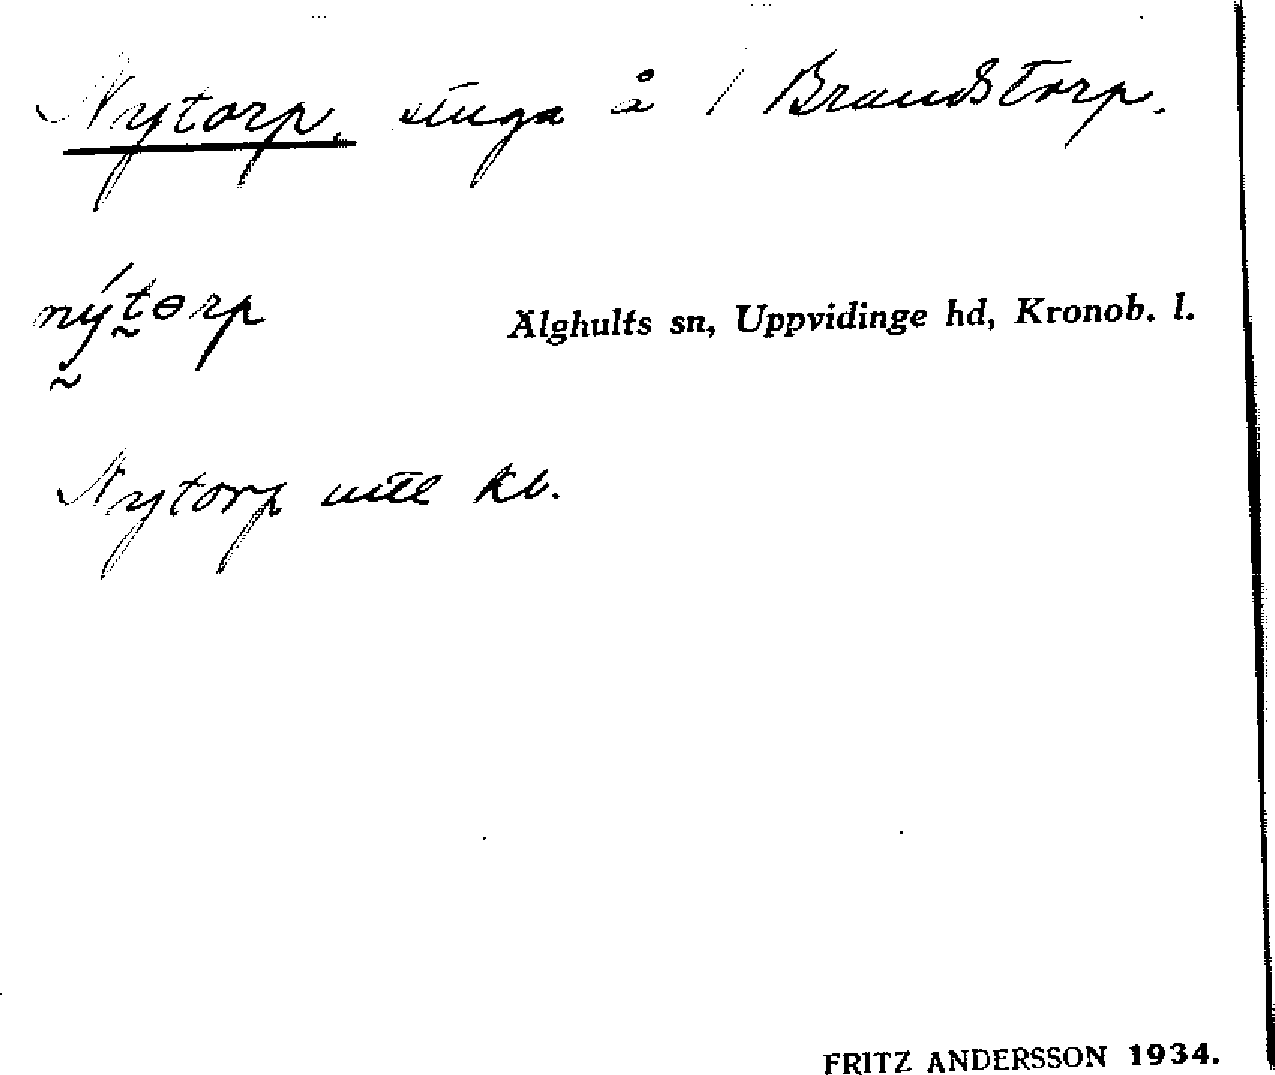 Nytorp. stuga å 1 Brandstorp.
nýtɵrp
Älghults sn, Uppvidinge hd, Kronob. l.
Nytorp utte kb.
FRITZ ANDERSSON 1934.